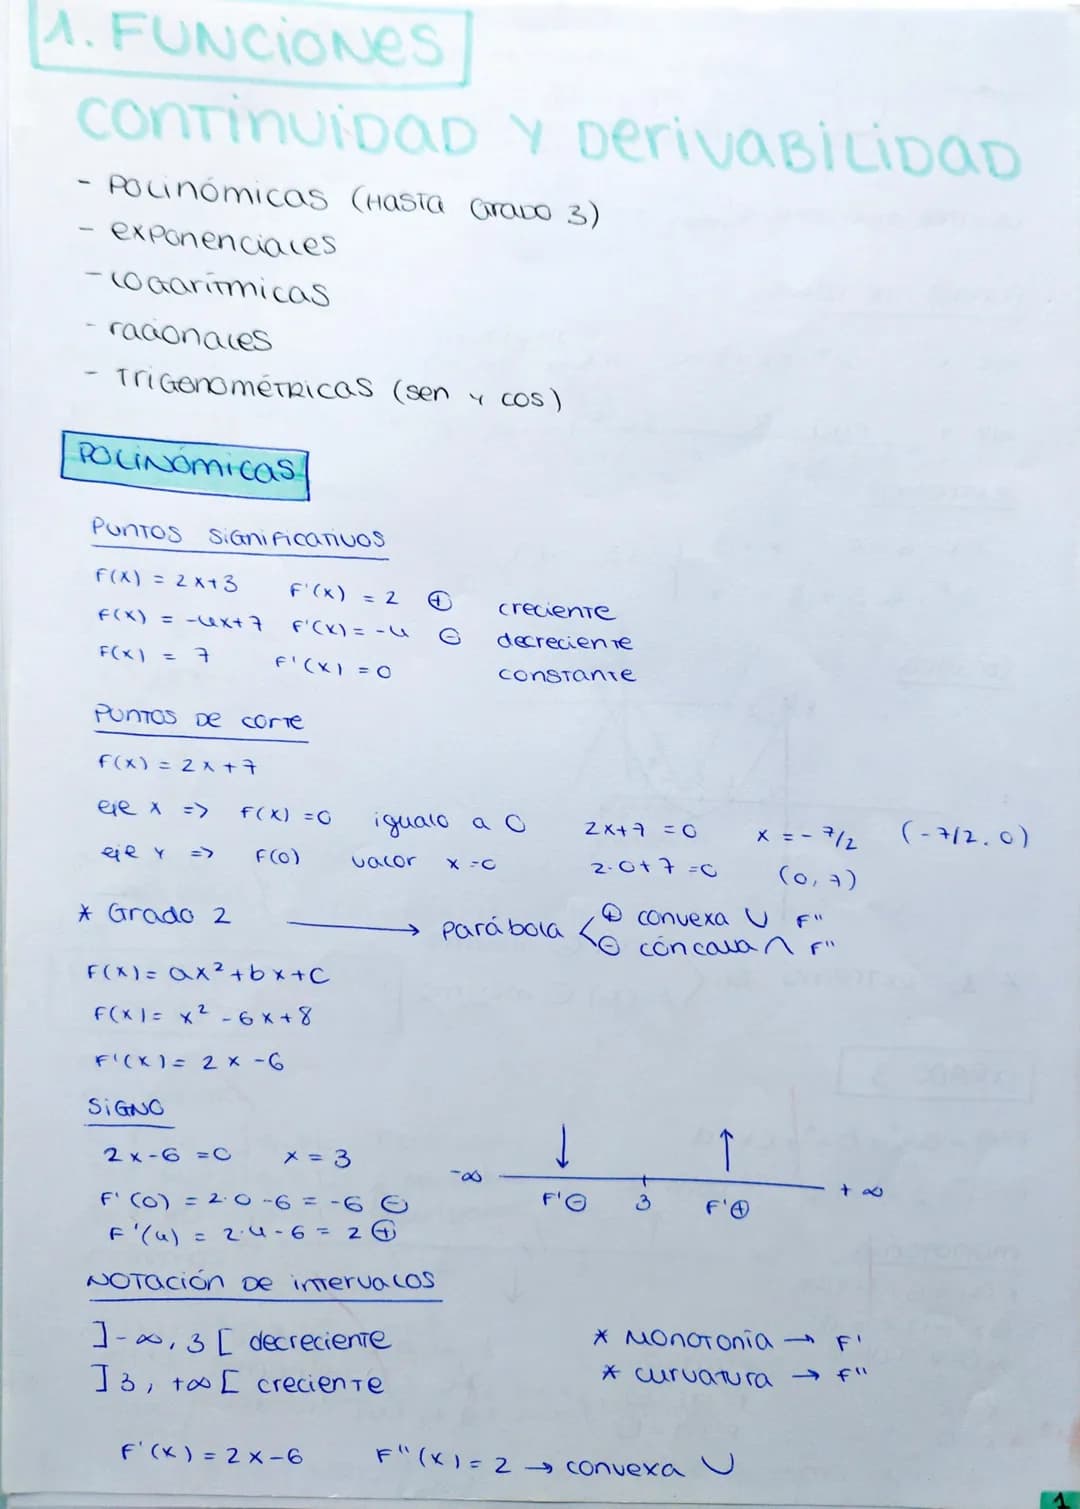 1. FUNCIONES
CONTINUIDAD Y DERIVABILIDAD
- POLINÓMICAS (HASTA GRADO 3)
- EXPONENCIALES
- LOGARÍTMICAS
- RACIONALES
- TRIGONOMÉTRICAS (sen y cos)
POLINÓMICAS
PUNTOS SIGNIFICATIVOS
F(x) = 2x+3 F'(x) = 2 ⊕ creciente
F(x) = -4x+7 F'(x) = -4 ⊖ decreciente
F(x) = 7 F'(x) = 0 constante
PUNTOS DE CORTE
F(x) = 2x+7
eje x => F(x) = 0 igualo a 0 2x+7 = 0 x = - 7/2 (-7/2, 0)
eje y => F(0) valor x = 0 2·0+7 = 0 (0, 7)
* Grado 2 → parábola ⊕ convexa ∪ F''
⊖ cóncava ∩ F''
F(x) = ax²+bx+c
F(x) = x² - 6x+8
F'(x) = 2x -6
SIGNO
2x-6 = 0 x = 3
F'(0) = 2·0 -6 = -6 ⊖
F'(4) = 2·4-6 = 2 ⊕
↓ ↑
-∞ F'⊖ 3 F'⊕ +∞
NOTACIÓN DE INTERVALOS
]-∞, 3[ decreciente
]3, +∞[ creciente
* MONOTONÍA → F'
* CURVATURA → F''
F'(x) = 2x-6 F''(x) = 2 → convexa ∪
1